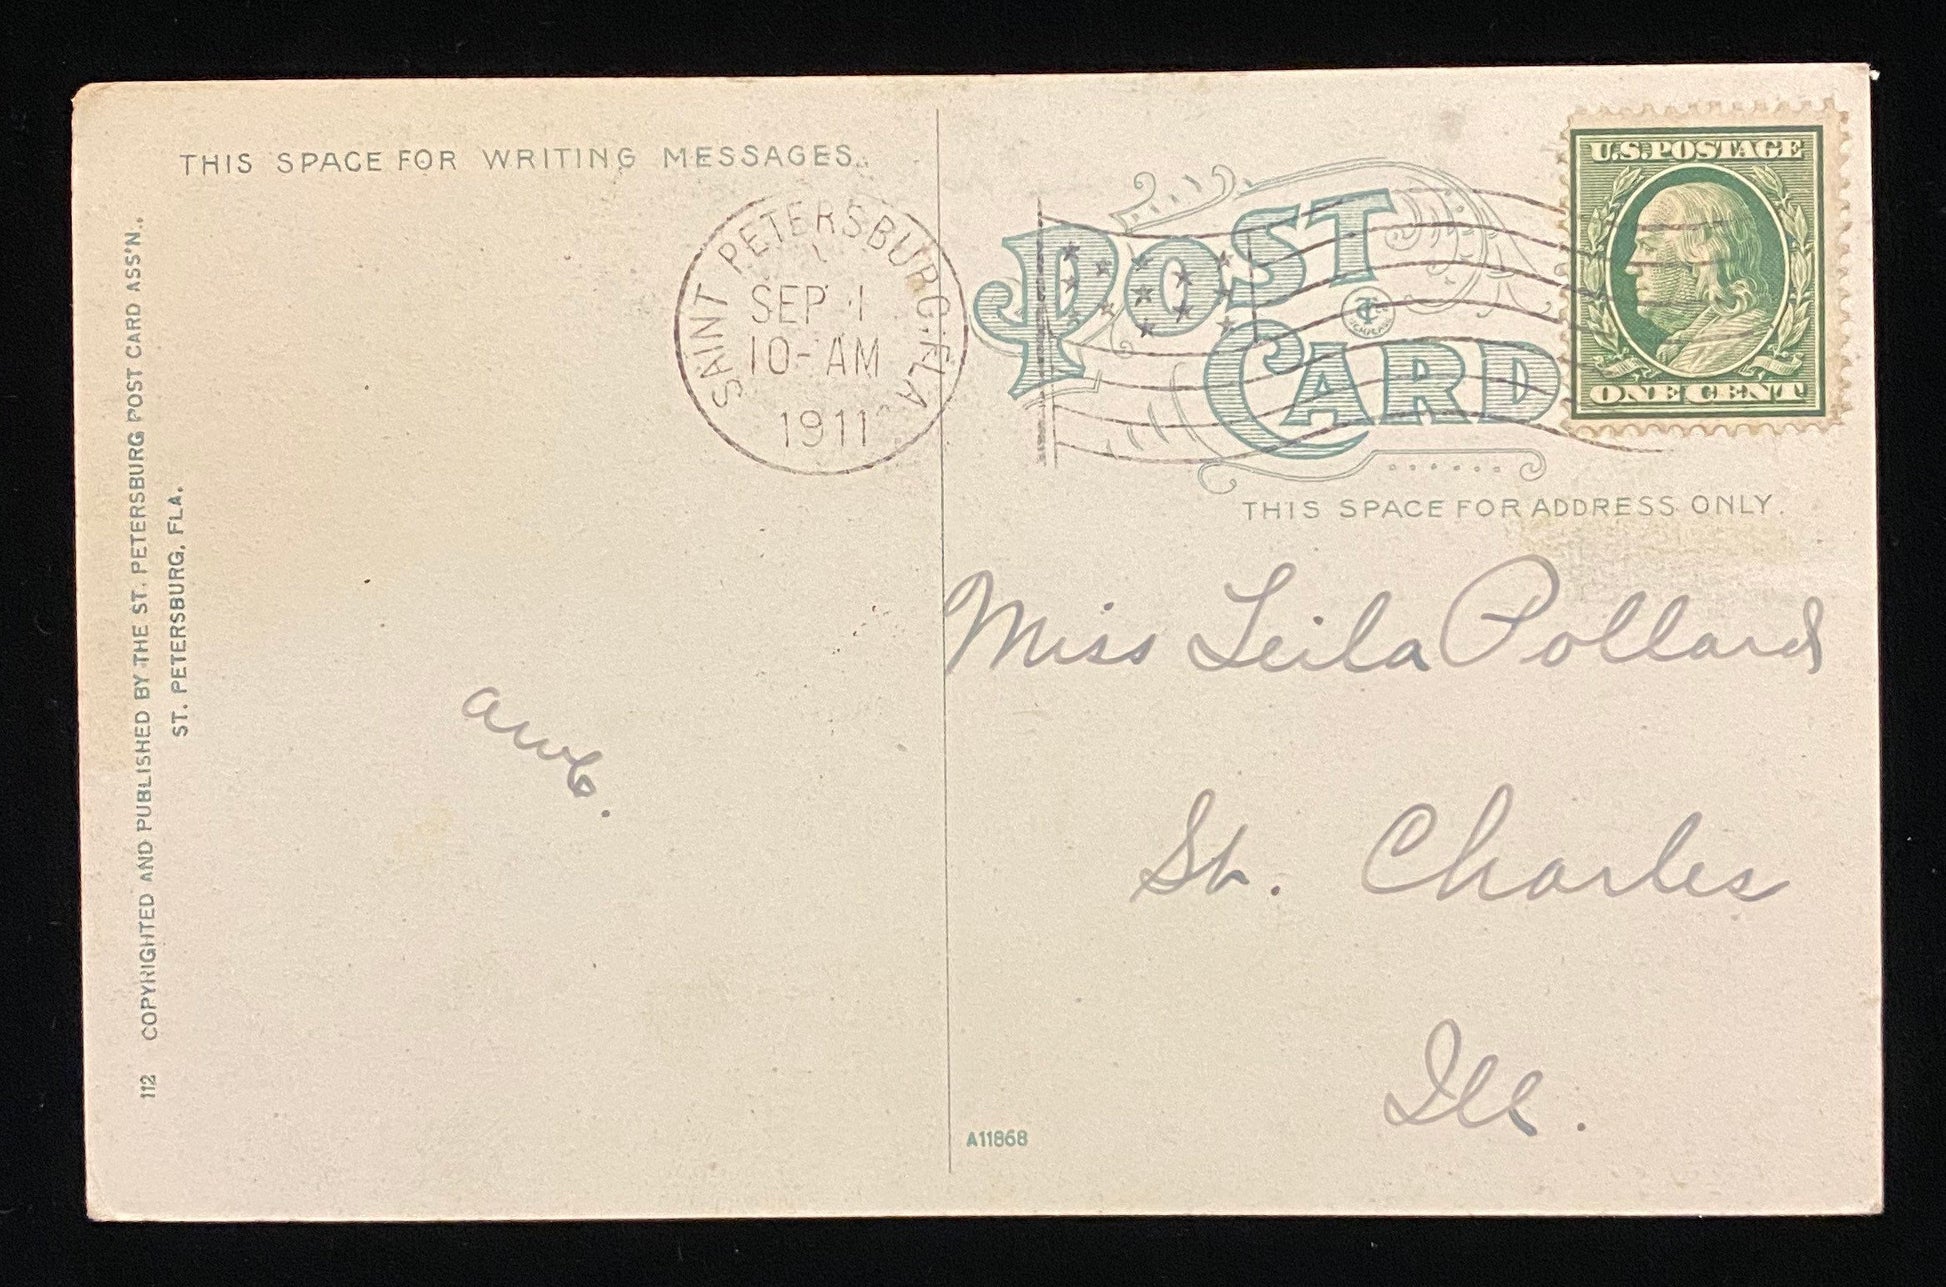 THIS SPACE FOR WRITING MESSAGES.
SAINT PETERSBURG, FLA
SEP 1
10-AM
1911
POST
CARD
U.S. POSTAGE
ONE CENT
THIS SPACE FOR ADDRESS ONLY.
Miss Leila Pollard
St. Charles
Ill.
awb.
112 COPYRIGHTED AND PUBLISHED BY THE ST. PETERSBURG POST CARD ASS'N.,
ST. PETERSBURG, FLA.
A11868